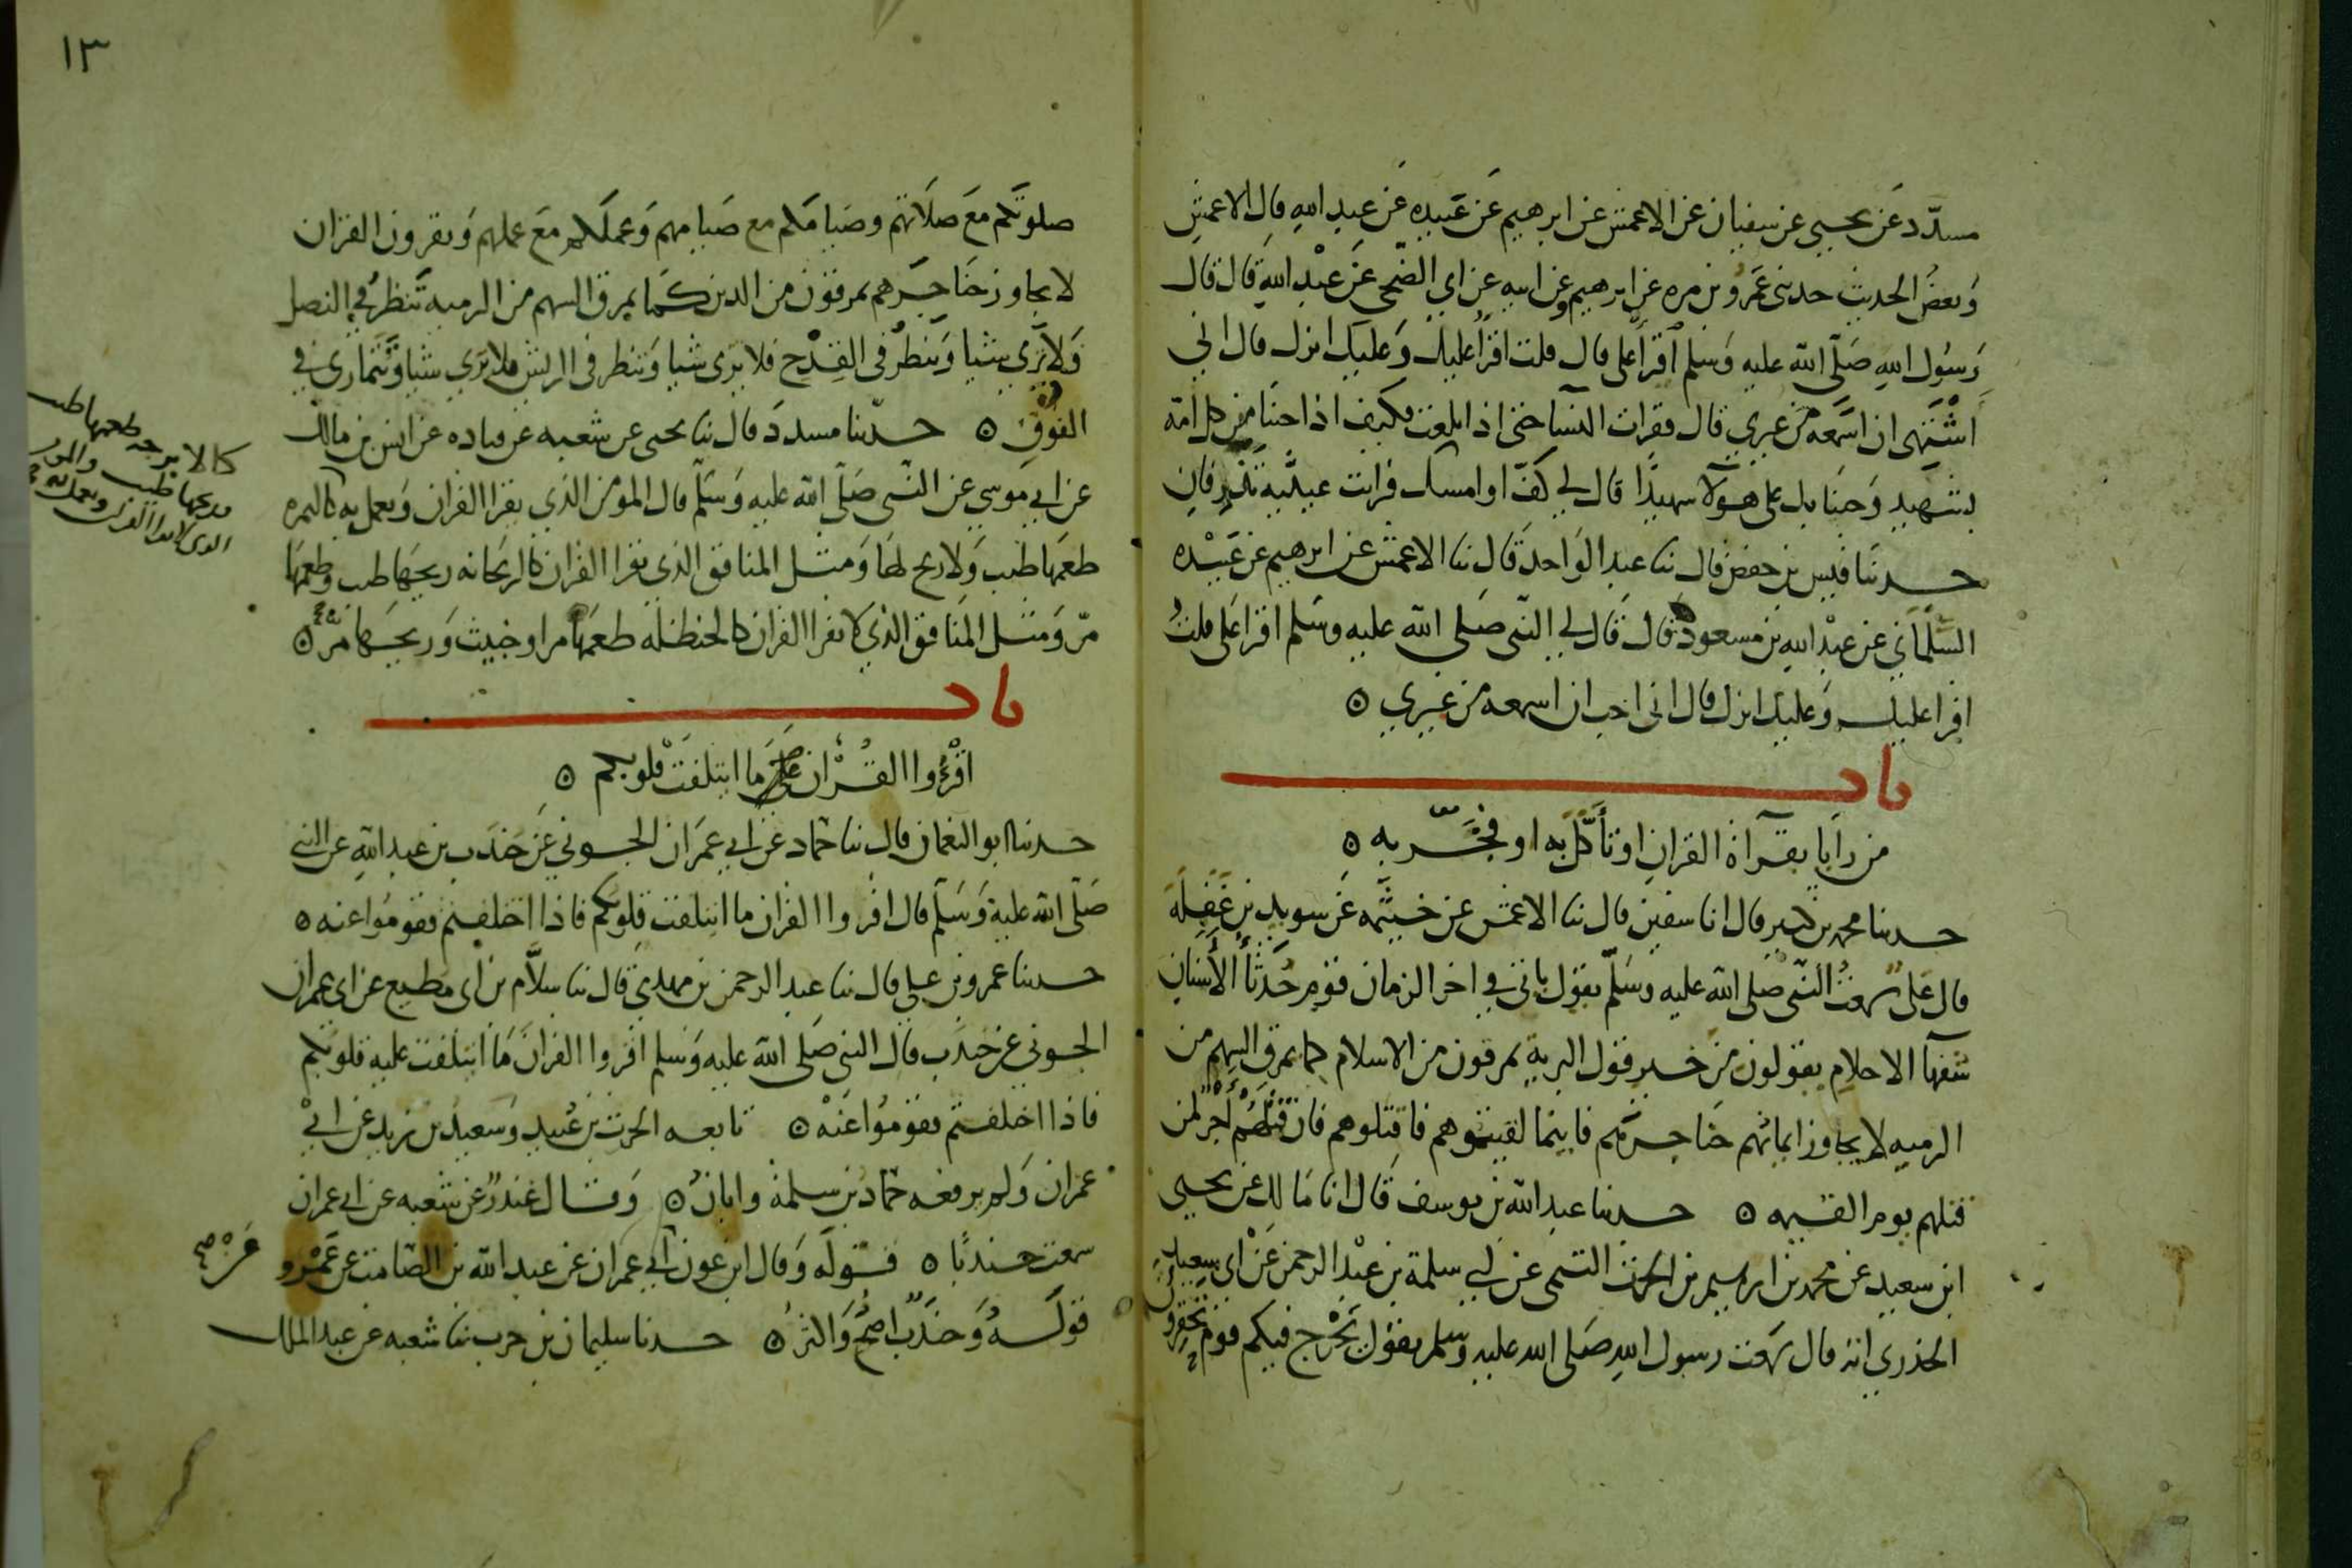 مسدّد عن يحيى عن سفيان عن الاعمش عن ابرهيم عن عبيده عن عبد الله قال الاعمش
وبعض الحديث حدثني عمرو بن مره عن ابرهيم وعن ابيه عن ابي الضحى عن عبد الله قال قال
رسول الله صلى الله عليه وسلم اقرأ علي قال قلت اقرأ عليك وعليك انزل قال اني
اشتهي ان اسمعه من غيري قال فقرات النسآ حتى اذا بلغت فكيف اذا جئنا من كل امة
بشهيد وجئنا بك على هولآ شهيدًا قال لي كفّ او امسك فرايت عينيه تذرفان
حدثنا قيس بن حفص قال ثنا عبد الواحد قال ثنا الاعمش عن ابرهيم عن عبيده
السلماني عن عبد الله بن مسعود قال قال لي النبي صلى الله عليه وسلم اقرا علي قلت
اقرا عليك وعليك انزل قال اني احب ان اسمعه من غيري ه
باب
من رايا بقرآة القران او تأكّل به او فخّر به ه
حدثنا محمد بن كثير قال انا سفين قال ثنا الاعمش عن خيثمه عن سويد بن غفلة
قال علي سمعت النبي صلى الله عليه وسلم يقول ياتي في اخر الزمان قوم حدثأ الأسنان
سفهآ الاحلام يقولون من خير قول البرية يمرقون من الاسلام كما يمرق السهم من
الرميه لا يجاوز ايمانهم حناجرهم فاينما لقيتموهم فاقتلوهم فان قتلهم أجر لمن
قتلهم يوم القيمه ه حدثنا عبد الله بن يوسف قال انا مالك عن يحيى
ابن سعيد عن محمد بن ابراهيم بن الحرث التيمى عن ابي سلمة بن عبد الرحمن عن ابي سعيد
الخدري انه قال سمعت رسول الله صلى الله عليه وسلم يقول يخرج فيكم قوم تحقرون
١٣
صلوتكم مع صلاتهم وصيامكم مع صيامهم وعملكم مع عملهم ويقرون القران
لا يجاوز حناجرهم يمرقون من الدين كما يمرق السهم من الرميه تنظر في النصل
ولا ترى شيا وتنظر في القدح فلا ترى شيا وتنظر في الريش فلا ترى شيا وتتمارى في
الفوق ه حدثنا مسدد قال ثنا يحيى عن شعبه عن قتاده عن انس بن مالك
عن ابي موسى عن النبي صلى الله عليه وسلم قال المومن الذي يقرا القران ويعمل به كالتمره
طعمها طيب ولا ريح لها ومثل المنافق الذي يقرا القران كالريحانه ريحها طيب وطعمها
مرّ ومثل المنافق الذي لا يقرا القران كالحنظله طعمها مر او خبيث وريحها مر ه
كالاترجه طعمها طيب
وريحها طيب والمومن
الذي لا يقرا القران ويعمل به
باب
اقرؤا القرآن ما ايتلفت قلوبكم ه
حدثنا ابو النعمان قال ثنا حماد عن ابي عمران الجوني عن جندب بن عبد الله عن النبي
صلى الله عليه وسلم قال اقروا القران ما ايتلفت قلوبكم فاذا اختلفتم فقوموا عنه ه
حدثنا عمرو بن علي قال ثنا عبد الرحمن بن مهدي قال ثنا سلاّم بن ابي مطيع عن ابي عمران
الجوني عن جندب قال النبي صلى الله عليه وسلم اقروا القران ما ايتلفت عليه قلوبكم
فاذا اختلفتم فقوموا عنه ه تابعه الحرث بن عبيد وسعيد بن زيد عن ابي
عمران ولم يرفعه حماد بن سلمة وابان ه وقال غندر عن شعبه عن ابي عمران
سمعت جندبًا ه قوله وقال ابن عون عن ابي عمران عن عبد الله بن الصامت عن عمرو
عمر صح
قوله وجندب اصح واكثر ه حدثنا سليمان بن حرب ثنا شعبه عن عبد الملك